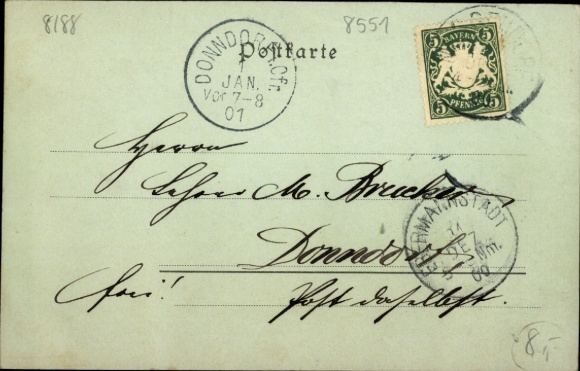 8188
8551
Postkarte
DONNDORF
1
JAN.
Vor 7-8
01
5 BAYERN 5
5 PFENNIG 5
Herrn
Lehrer M. Bruckner
Donndorf
frei! Post daselbst.
EBERMANNSTADT
DEZ
Nm.
00
8,-